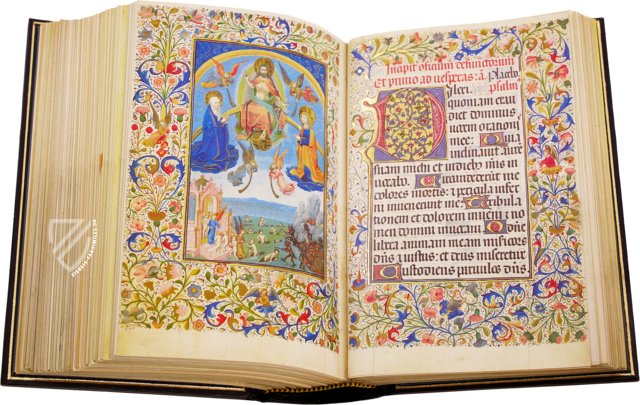 Incipit officium defunctorum
et primo ad vesperas: a. Placebo.
psalm
Dilexi
quoniam exau
diet dominus
vocem orationis
mee: Quia
inclinavit aurē
suam michi et in diebus meis in
vocabo. Circumdederūt me
dolores mortis: et pericula infer
ni invenerunt me. Tribula
tionem et dolorem inveni et nomen
domini invocavi. O domine
libera animam meam misericors
dominus et iustus: et deus noster miseretur
Custodiens parvulos dn̄s
ZIEREIS-FAKSIMILES.DE